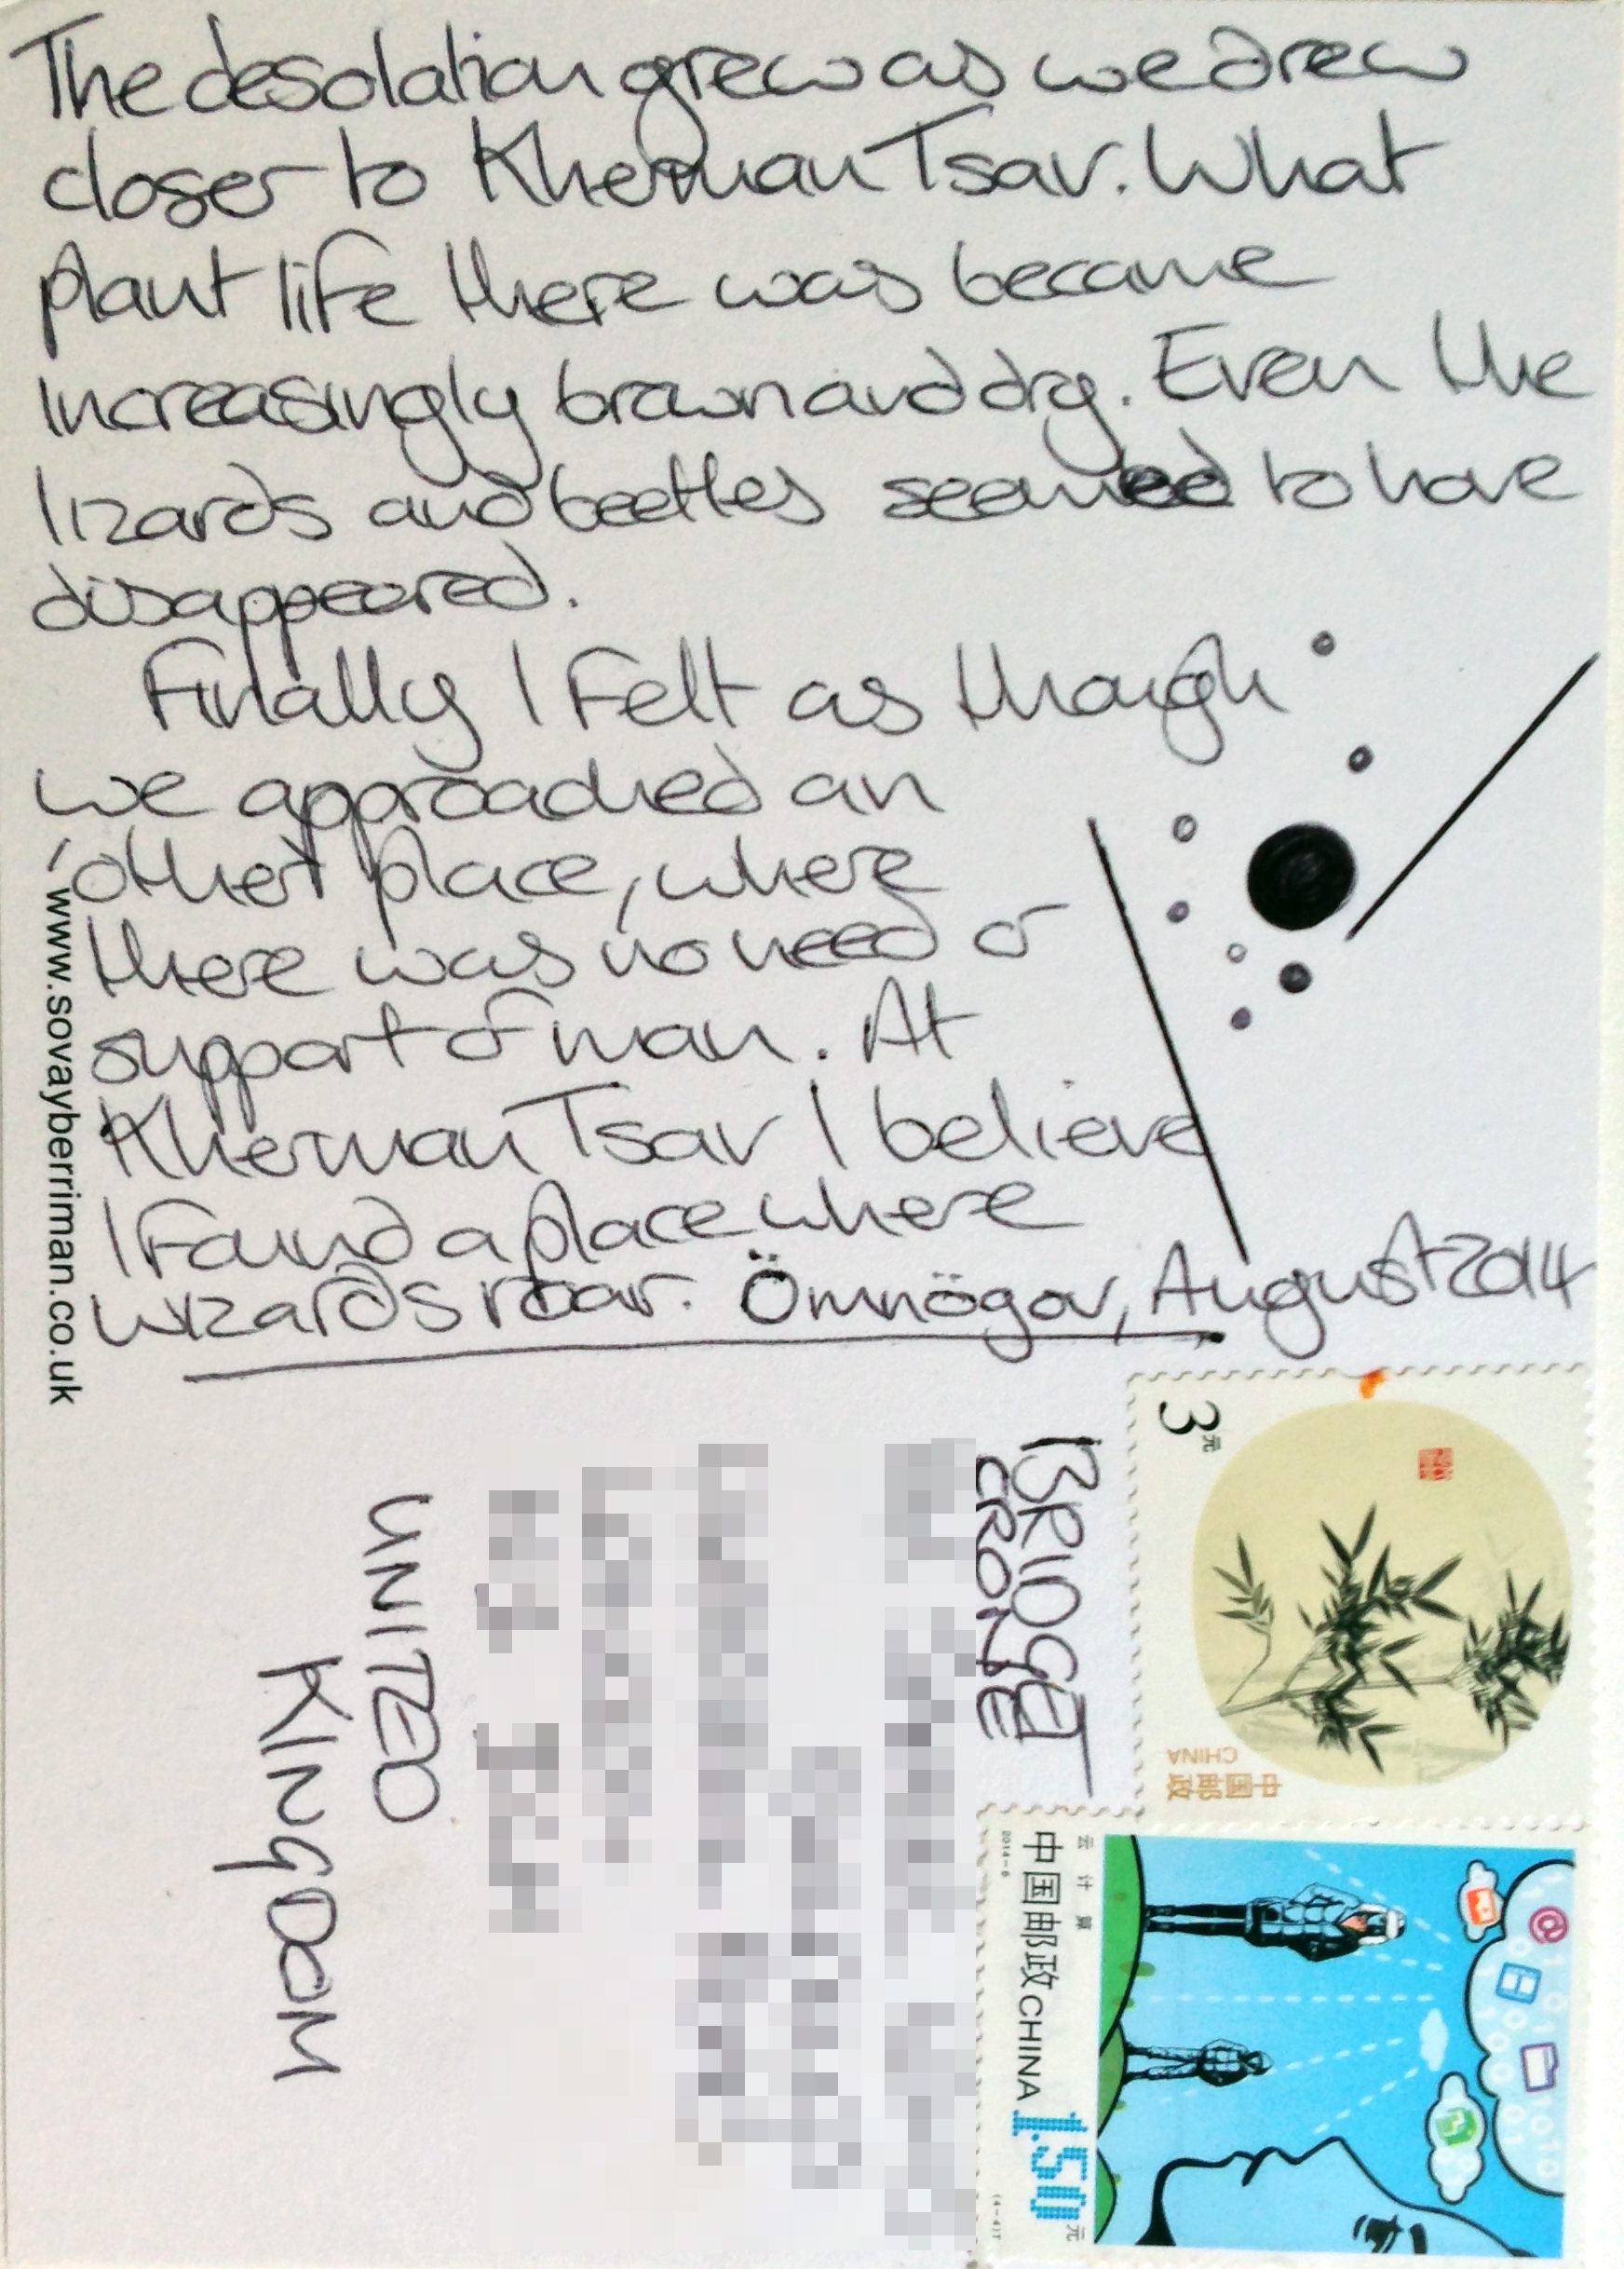 The desolation grew as we drew
closer to Kherman Tsav. What
plant life there was became
increasingly brown and dry. Even the
lizards and beetles seemed to have
disappeared.
Finally I felt as though
we approached an
'other' place, where
there was no need or
support of man. At
Kherman Tsav I believe
I found a place where
wizards roar. Ömnögov, August 2014
www.sovayberriman.co.uk
BRIDGET
CRONE
UNITED
KINGDOM
3元
中国邮政
CHINA
云计算
2014-6
中国邮政 CHINA 1.50元
(4-4)T